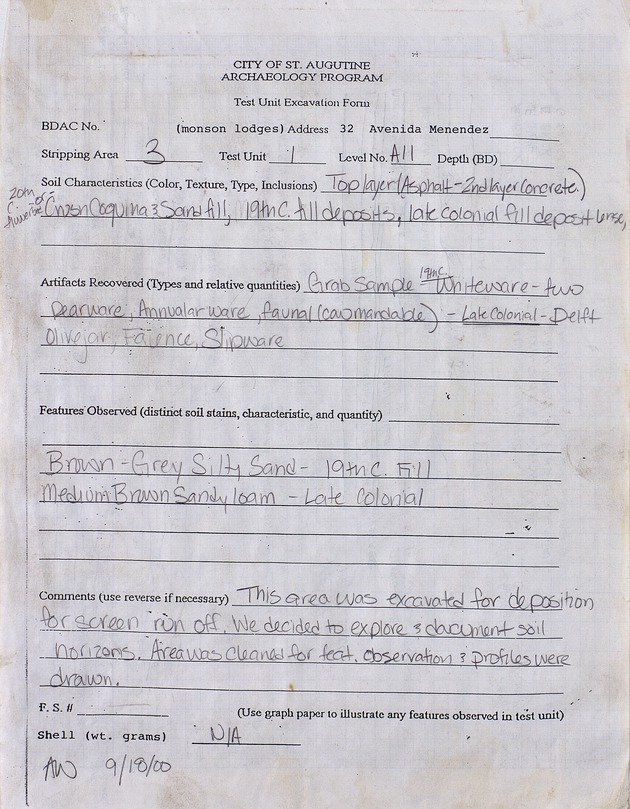 CITY OF ST. AUGUTINE
ARCHAEOLOGY PROGRAM
Test Unit Excavation Form
BDAC No. (monson lodges) Address 32 Avenida Menendez
Stripping Area 3 Test Unit 1 Level No. All Depth (BD)
Soil Characteristics (Color, Texture, Type, Inclusions) Top layer (Asphalt - 2nd layer Concrete.)
20th C. Coquina & Sand fill, 19th C. fill deposits, late colonial fill deposit
Artifacts Recovered (Types and relative quantities) Grab Sample 19th C. Whiteware - two
pearware, Annualar ware, faunal (cow mandable) - Late Colonial - Delft
Olive jar, Faience, Slipware
Features Observed (distinct soil stains, characteristic, and quantity)
Brown - Grey Silty Sand - 19th C. Fill
Medium Brown Sandy loam - Late Colonial
Comments (use reverse if necessary) This area was excavated for deposition
for screen run off. We decided to explore & document soil
horizons. Area was cleaned for feat. observation & profiles were
drawn.
F. S. #
(Use graph paper to illustrate any features observed in test unit)
Shell (wt. grams) N/A
AW 9/18/00